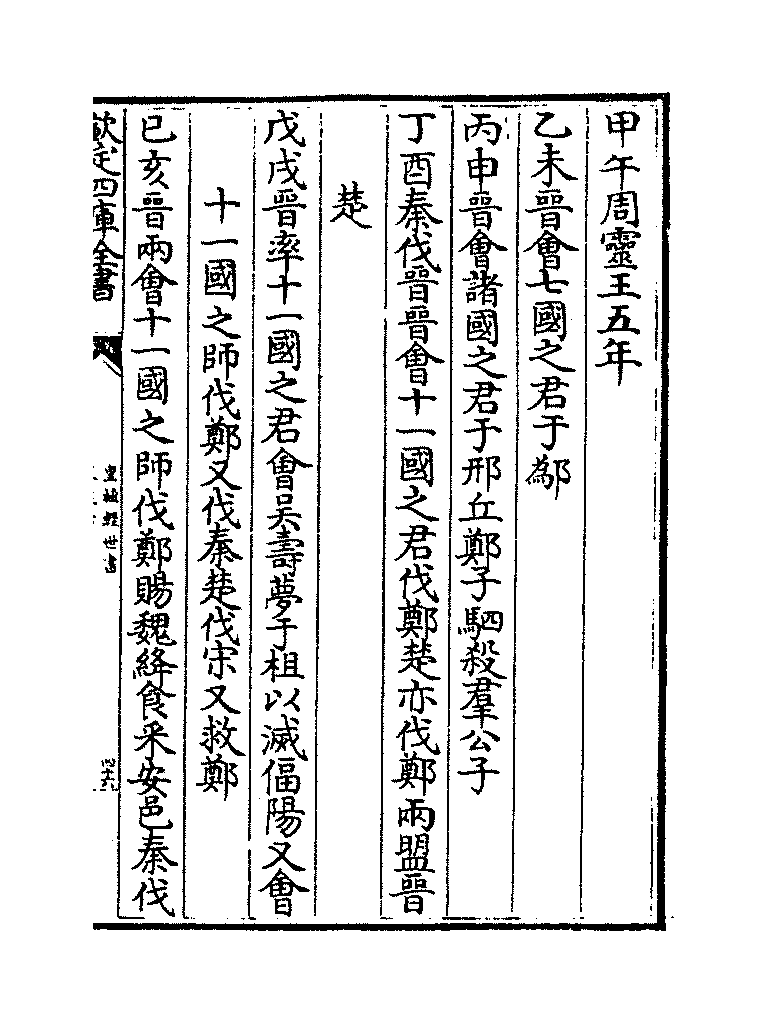 甲午周靈王五年
乙未晉會七國之君于鄬
丙申晉會諸國之君于邢丘鄭子駟殺羣公子
丁酉秦伐晉晉會十一國之君伐鄭楚亦伐鄭兩盟晉
楚
戊戌晉率十一國之君會吳壽夢于柤以滅偪陽又會
十一國之師伐鄭又伐秦楚伐宋又救鄭
已亥晉兩會十一國之師伐鄭賜魏絳食采安邑秦伐
欽定四庫全書
皇極經世書
四十六